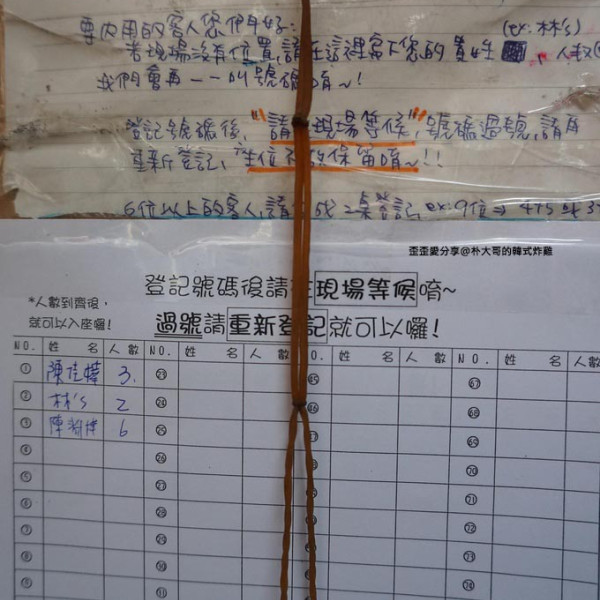 尊內用的客人您們好:
(ex: 林's)
若現場沒有位置,請在這裡寫下您的貴姓 、人數
我們會再一一叫號碼唷~!
登記號碼後,"請 現場等候",號碼過號,請再
重新登記,座位不 保留唷~!!
6位以上的客人,請 成2桌登記,ex:9位⇒4+5 或3
歪歪愛分享@朴大哥的韓式炸雞
登記號碼後請 現場等候唷~
*人數到齊後,
就可以入座喔!
過號請重新登記就可以囉!
NO. 姓 名 人 數 NO. 姓 名 人 數 NO. 姓 名 人 數 NO. 姓 名 人 數
① 陳佳 3. ㉓ ㊺ 67
② 林's 2 ㉔ ㊻
③ 陳 6 ㉕ 69
④ ㉖ 70
⑤ ㉗ 71
⑥ ㉘
⑦ ㉙
⑧ ㉚
⑨